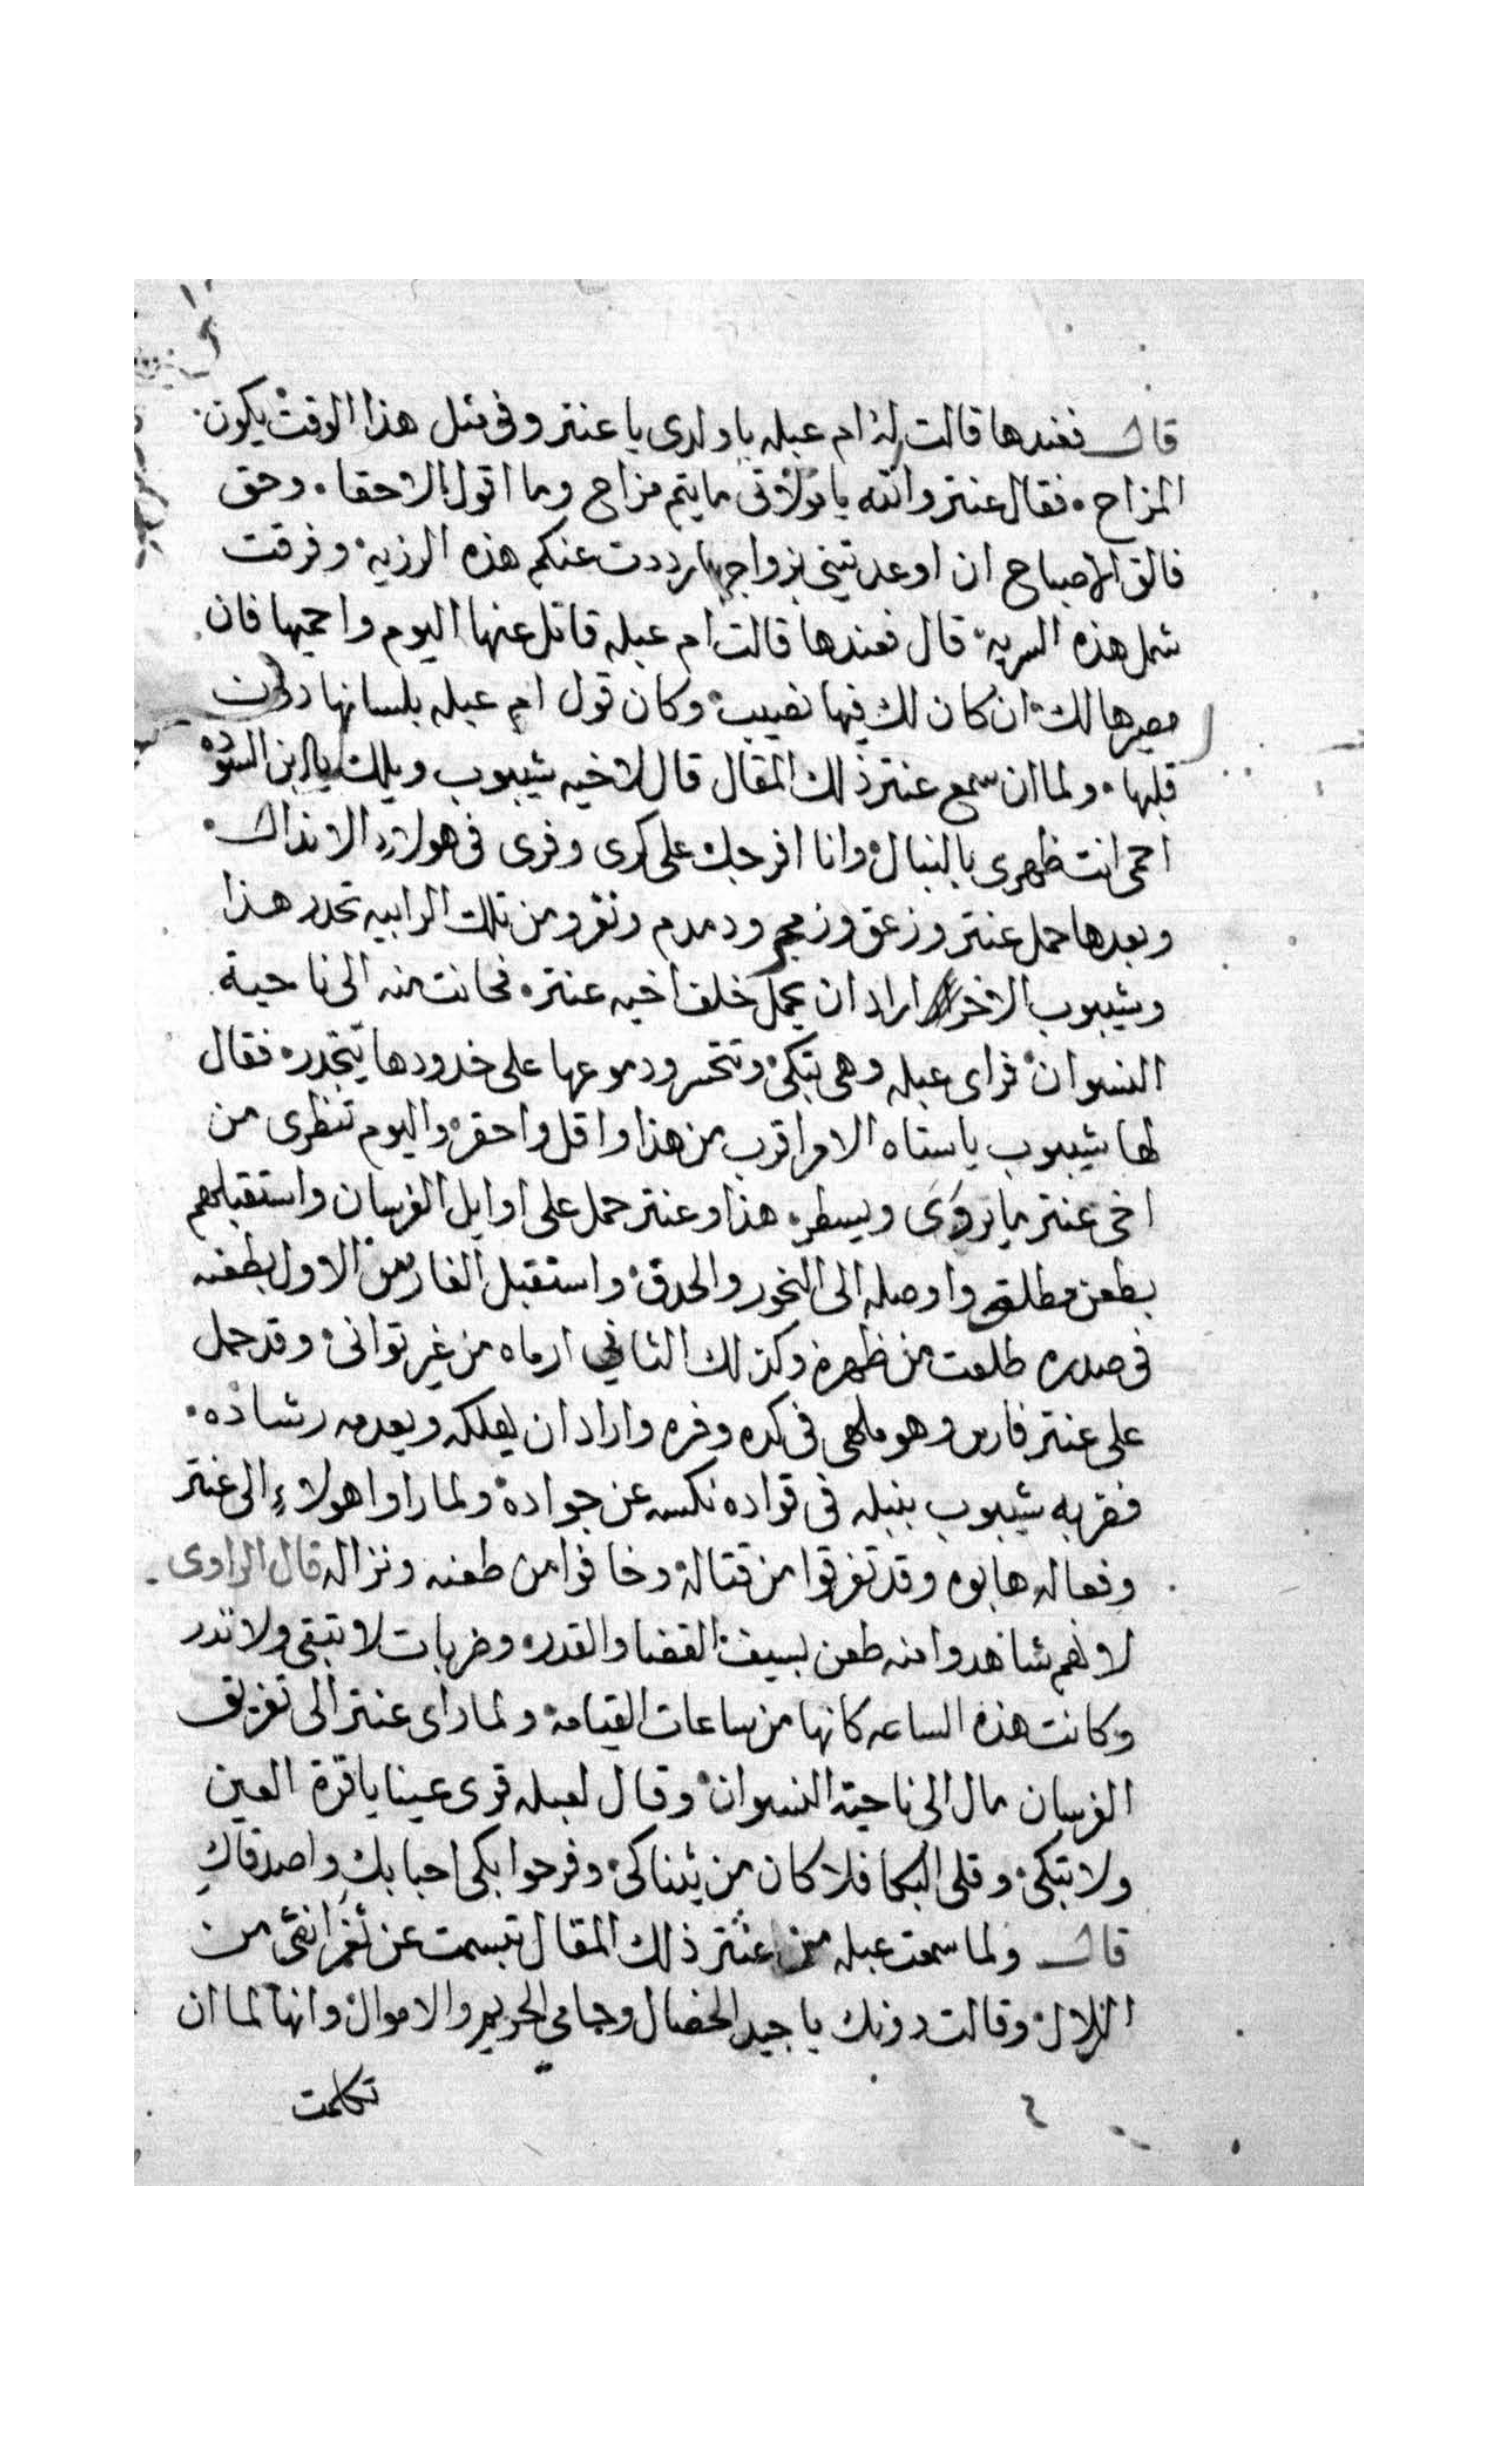 قال فعندها قالت له ام عبله يا ولدى يا عنتر وفى مثل هذا الوقت يكون
المزاح فقال عنتر والله يا مولاتى ما يتم مزاح وما اقول الا حقا وحق
فالق الاصباح ان اوعدتينى بزواجها رددت عنكم هذه الرزيه وفرقت
شمل هذه السريه قال فعندها قالت ام عبله قاتل عنها اليوم واحميها فان
مصيرها لك ان كان لك فيها نصيب وكان قول ام عبله بلسانها دون
قلبها ولما ان سمع عنتر ذلك المقال قال لاخيه شيبوب ويلك يا ابن السوده
احمى انت ظهرى بالنبال وانا افرجك على كرى وفرى فى هولاء الانذال
وبعدها حمل عنتر وزعق وزمجر ودمدم ونفر ومن تلك الرابيه تحدر هذا
وشيبوب الاخر اراد ان يحمل خلف اخيه عنتر فحانت منه الى ناحية
النسوان فراى عبله وهى تبكى وتتحسر ودموعها على خدودها تتحدر فقال
لها شيبوب يا ستاه الامر اقرب من هذا واقل واحقر واليوم تنظرى من
اخى عنتر ما يروى ويسطر هذا وعنتر حمل على اوايل الفرسان واستقبلهم
بطعن مطلق واوصله الى النحور والحدق واستقبل الفارس الاول بطعنه
فى صدره طلعت من ظهره وكذلك الثانى ارماه من غير توانى وقد حمل
على عنتر فارس وهو ملهى فى كره وفره واراد ان يهلكه ويعدمه رشاده
فضربه شيبوب بنبله فى فواده نكسه عن جواده ولما راوا هولاء الى عنتر
وفعاله هابوه وقد تفرقوا من قتاله وخافوا من طعنه ونزاله قال الراوى
لانهم شاهدوا منه طعن يسبق القضا والقدر وضربات لا تبقى ولا تذر
وكانت هذه الساعه كانها من ساعات القيامه ولما راى عنتر الى تفريق
الفرسان مال الى ناحية النسوان وقال لعبله قرى عينا يا قرة العين
ولا تبكى وقلى البكا فلا كان من يشناكى وفرحوا بكى احبابك واصدقاك
قال ولما سمعت عبله من عنتر ذلك المقال تبسمت عن ثغر انقى من
الزلال وقالت دونك يا جيد الخصال وحامى الحريم والاموال وانها لما ان
تكلمت
٤